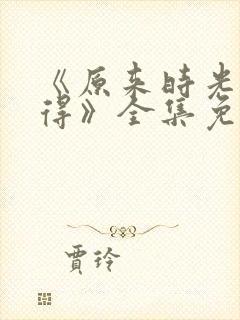 《原来时光
得》全集免
贾玲